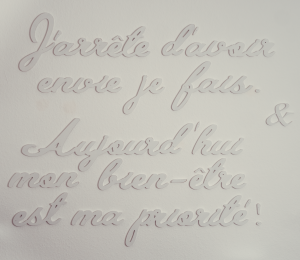 J'arrête d'avoir
envie je fais.
&
Aujourd'hui
mon bien-être
est ma priorité !